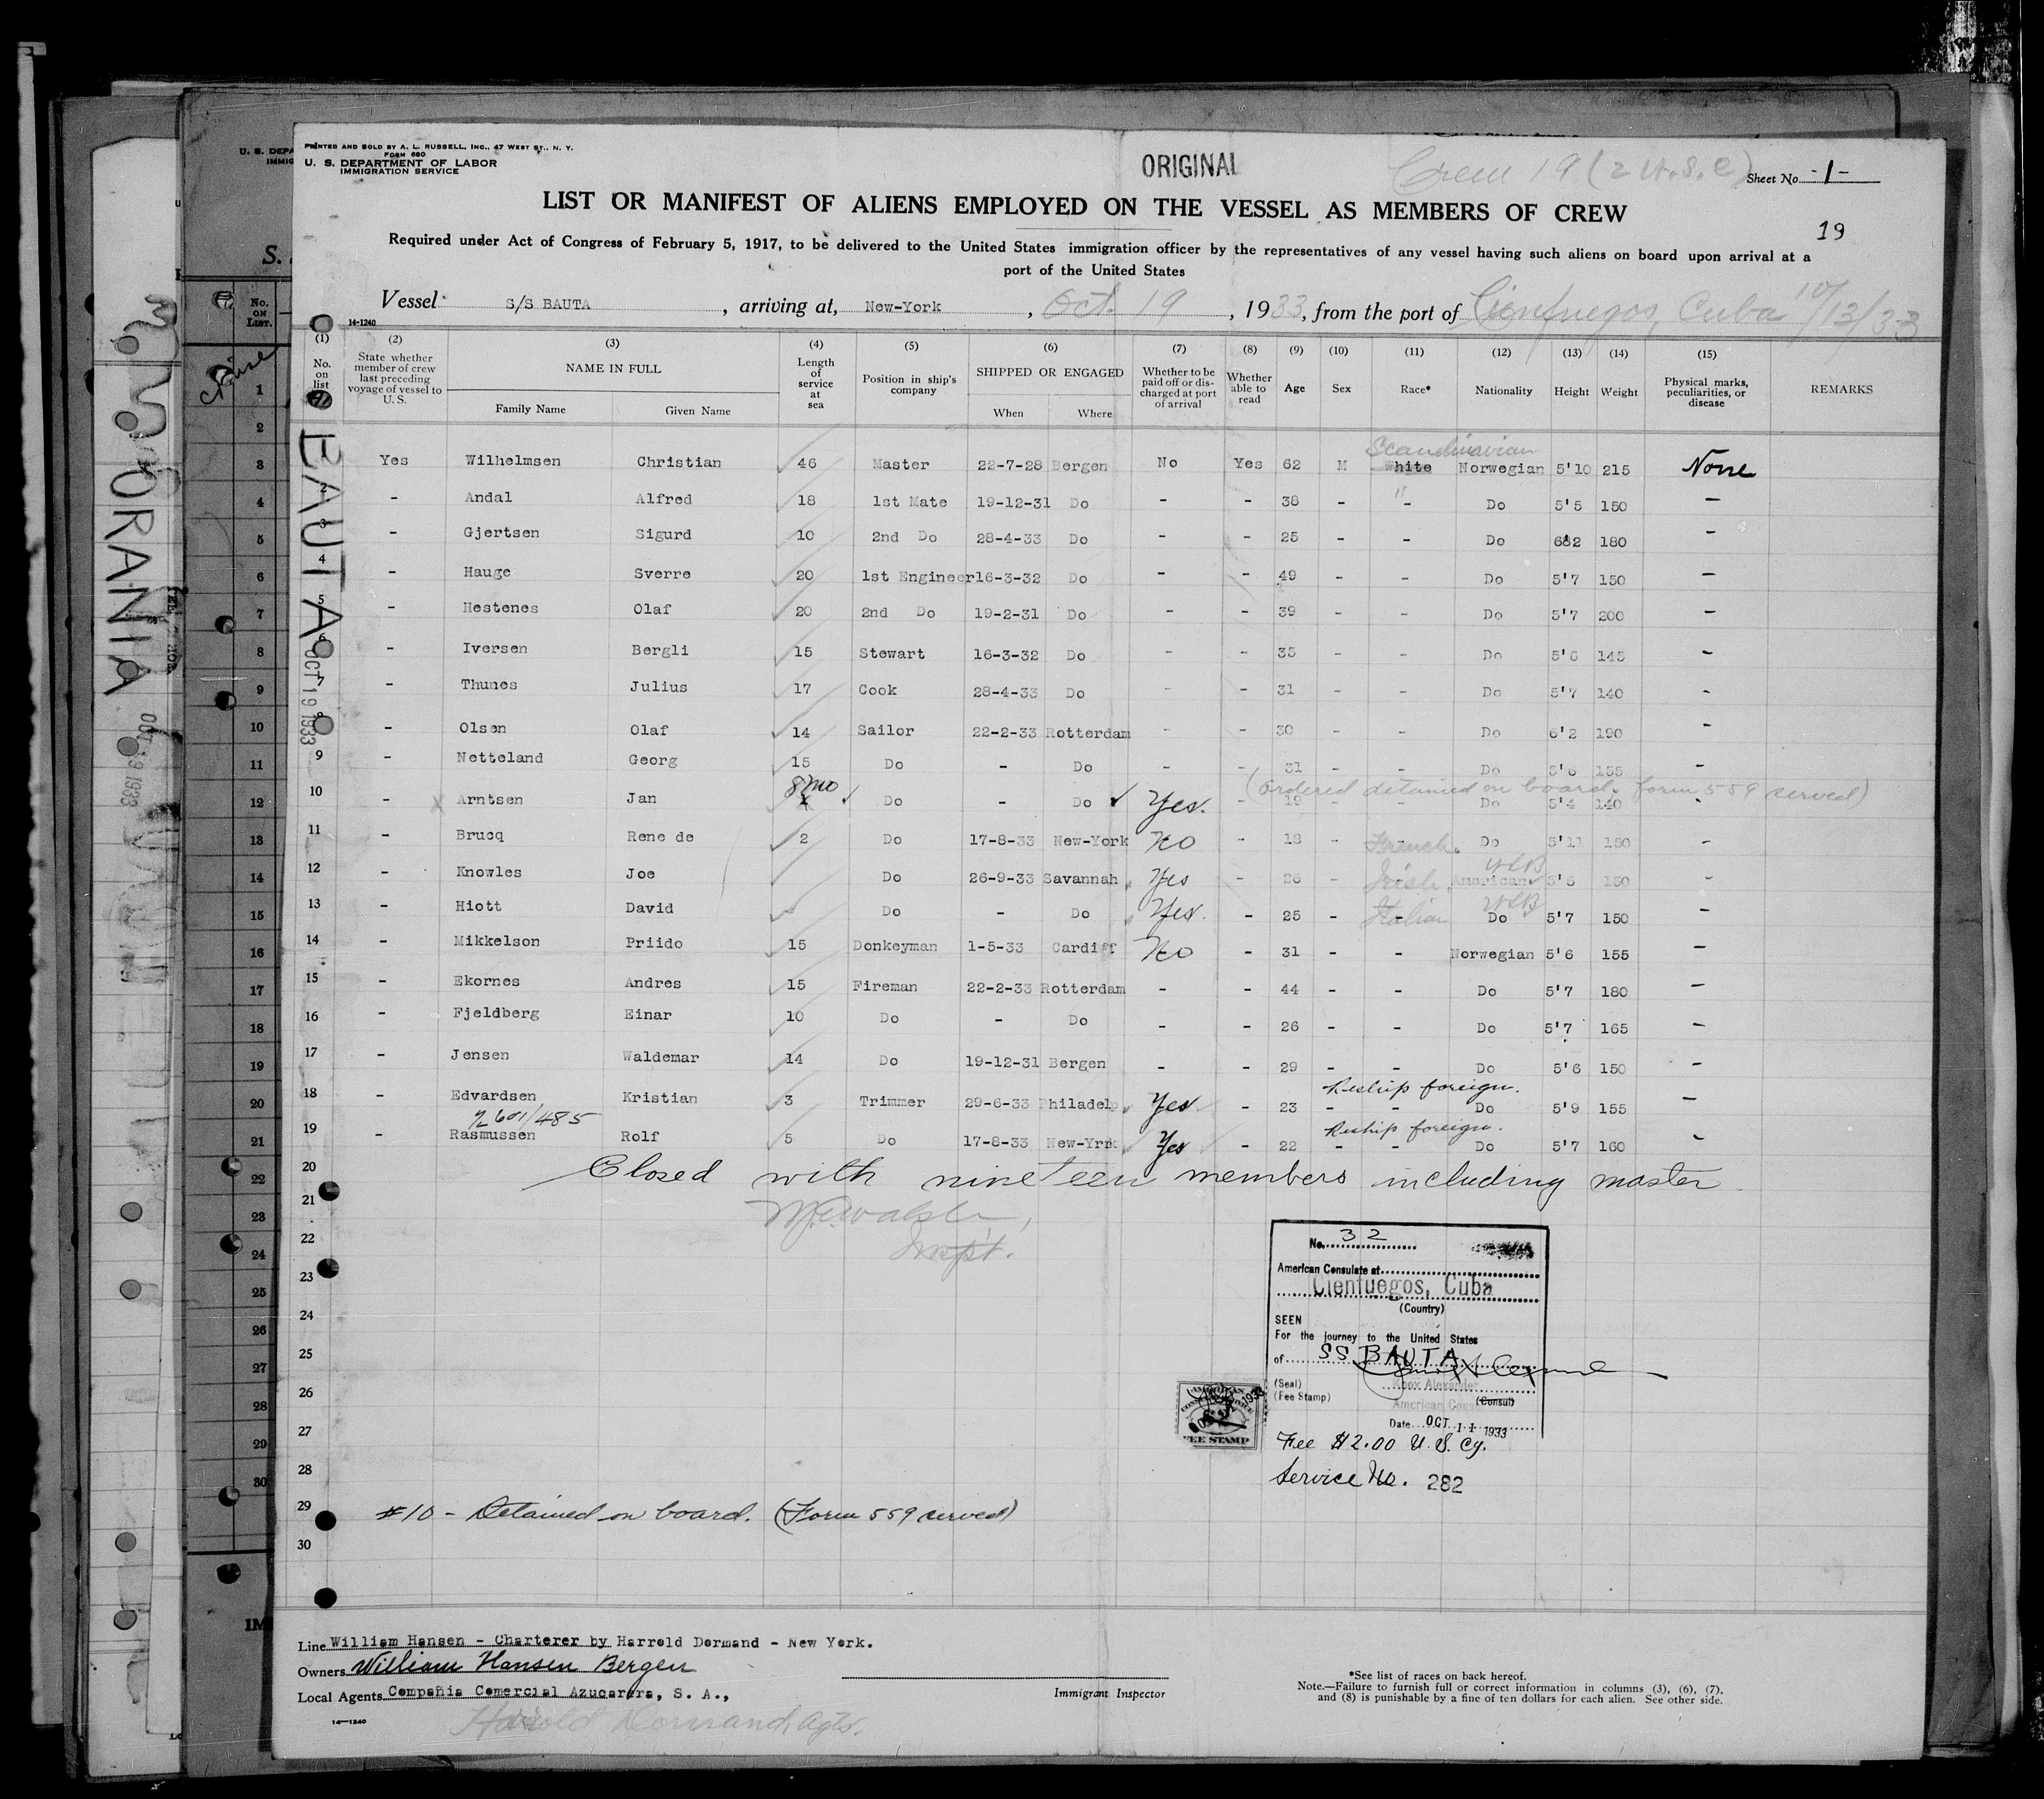 PRINTED AND SOLD BY A. L. RUSSELL, INC., 47 WEST ST., N. Y.
FORM 680
U. S. DEPARTMENT OF LABOR
IMMIGRATION SERVICE
ORIGINAL
Crew 19 (2 U.S.C)
Sheet No. -1-
LIST OR MANIFEST OF ALIENS EMPLOYED ON THE VESSEL AS MEMBERS OF CREW
19
Required under Act of Congress of February 5, 1917, to be delivered to the United States immigration officer by the representatives of any vessel having such aliens on board upon arrival at a
port of the United States
Vessel S/S BAUTA, arriving at, New-York, Oct. 19, 1933, from the port of Cienfuegos, Cuba 10/13/33
14-1240
(1) (2) (3) (4) (5) (6) (7) (8) (9) (10) (11) (12) (13) (14) (15)
No. on list
State whether member of crew last preceding voyage of vessel to U. S.
NAME IN FULL
Family Name Given Name
Length of service at sea
Position in ship's company
SHIPPED OR ENGAGED
When Where
Whether to be paid off or discharged at port of arrival
Whether able to read
Age Sex Race* Nationality Height Weight
Physical marks, peculiarities, or disease
REMARKS
BAUTA
OCT 19 1933
Scandinavian
Yes Wilhelmsen Christian 46 Master 22-7-28 Bergen No Yes 62 M White Norwegian 5'10 215 None
2 - Andal Alfred 18 1st Mate 19-12-31 Do - - 38 - " - Do 5'5 150 -
3 - Gjertsen Sigurd 10 2nd Do 28-4-33 Do - - 25 - - Do 6'2 180 -
4 - Hauge Sverre 20 1st Engineer 16-3-32 Do - - 49 - - Do 5'7 150 -
5 - Hestenes Olaf 20 2nd Do 19-2-31 Do - - 39 - - Do 5'7 200 -
6 - Iversen Bergli 15 Stewart 16-3-32 Do - - 35 - - Do 5'6 145 -
7 - Thunes Julius 17 Cook 28-4-33 Do - - 31 - - Do 5'7 140 -
8 - Olsen Olaf 14 Sailor 22-2-33 Rotterdam - - 30 - - Do 6'2 190 -
9 - Netteland Georg 15 Do - Do - - 31 - - Do 5'6 155 -
(Ordered detained on board. form 559 served)
10 x Arntsen Jan 8 mo Do - Do Yes. - 19 - - Do 5'4 140 -
11 - Brucq Rene de 2 Do 17-8-33 New-York No - 18 - French. Do 5'11 150 -
12 - Knowles Joe Do 26-9-33 Savannah Yes - 26 - Irish American 5'6 150 -
13 - Hiott David - Do - Do Yes. - 25 - Italian Do 5'7 150 -
14 - Mikkelson Priido 15 Donkeyman 1-5-33 Cardiff No - 31 - - Norwegian 5'6 155 -
15 - Ekornes Andres 15 Fireman 22-2-33 Rotterdam - - 44 - - Do 5'7 180 -
16 - Fjeldberg Einar 10 Do - Do - - 26 - - Do 5'7 165 -
17 - Jensen Waldemar 14 Do 19-12-31 Bergen - - 29 - - Do 5'6 150 -
Reship foreign.
18 - Edvardsen Kristian 3 Trimmer 29-6-33 Philadelp Yes - 23 - - Do 5'9 155 -
Reship foreign.
19 - Rasmussen Rolf 5 Do 17-8-33 New-Yrk Yes - 22 - - Do 5'7 160 -
20
Closed with nineteen members including master
21
22
Inspt.
23
24
25
26
27
28
29
#10 - Detained on board. (Form 559 served)
30
No. 32
American Consulate at
Cienfuegos, Cuba
(Country)
SEEN
For the journey to the United States
of SS BAUTA
(Seal)
(Fee Stamp)
Knox Alexander
American Consul
(Consul)
Date OCT 11 1933
Fee $2.00 U.S. Cy.
Service No. 282
FEE STAMP
Line William Hansen - Charterer by Harrold Dormand - New York.
Owners William Hansen Bergen
Local Agents Compañia Comercial Azucarera, S. A.,
Harold Dormand, Agts.
14—1240
Immigrant Inspector
*See list of races on back hereof.
Note.—Failure to furnish full or correct information in columns (3), (6), (7),
and (8) is punishable by a fine of ten dollars for each alien. See other side.
ORANIA
OCT 19 1933
U. S. DEPA
IMMIG
No. ON LIST.
1
2
3
4
5
6
7
8
9
10
11
12
13
14
15
16
17
18
19
20
21
22
23
24
25
26
27
28
29
30